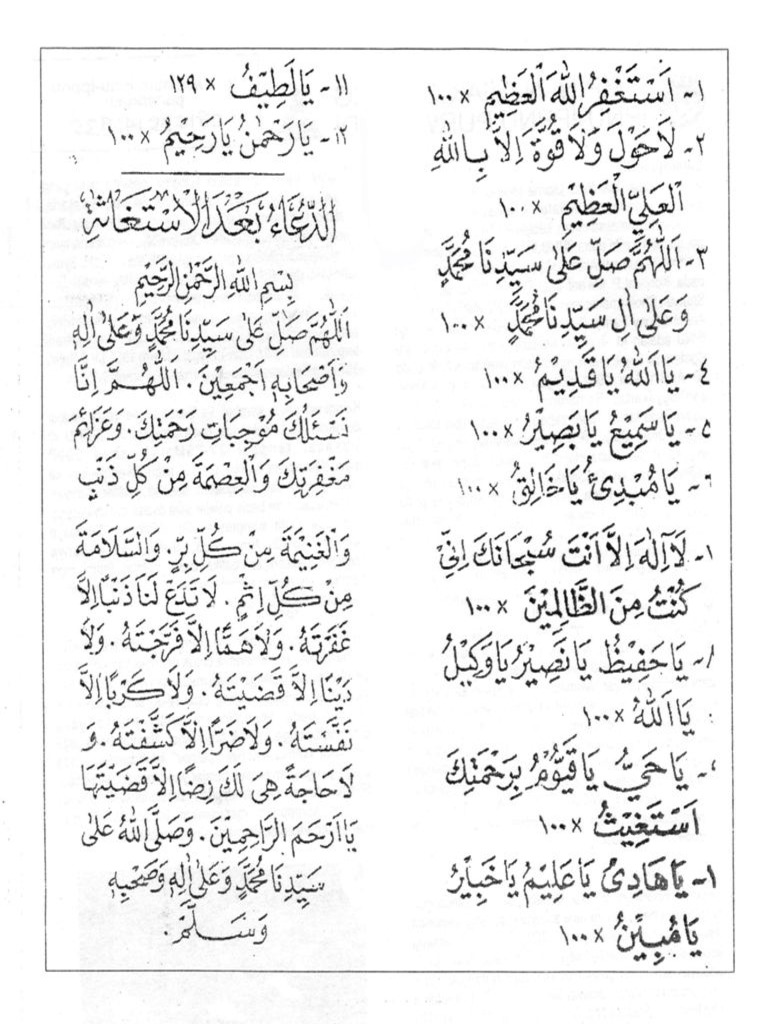 ١- اَسْتَغْفِرُ اللهَ الْعَظِيْمِ × ١٠٠
٢- لَاحَوْلَ وَلَا قُوَّةَ اِلَّا بِاللهِ
الْعَلِيِّ الْعَظِيْمِ × ١٠٠
٣- اَللّٰهُمَّ صَلِّ عَلٰى سَيِّدِنَا مُحَمَّدٍ
وَعَلٰى اٰلِ سَيِّدِنَا مُحَمَّدٍ × ١٠٠
٤- يَا اَللهُ يَا قَدِيْمُ × ١٠٠
٥- يَا سَمِيْعُ يَا بَصِيْرُ × ١٠٠
٦- يَا مُبْدِئُ يَا خَالِقُ × ١٠٠
- لَآاِلٰهَ اِلَّا اَنْتَ سُبْحَانَكَ اِنِّيْ
كُنْتُ مِنَ الظَّالِمِيْنَ × ١٠٠
- يَا حَفِيْظُ يَا نَصِيْرُ يَا وَكِيْلُ
يَا اَللهُ × ١٠٠
- يَا حَيُّ يَا قَيُّوْمُ بِرَحْمَتِكَ
اَسْتَغِيْثُ × ١٠٠
١- يَا هَادِىْ يَا عَلِيْمُ يَا خَبِيْرُ
يَا مُبِيْنُ × ١٠٠
١١- يَا لَطِيْفُ × ١٢٩
١٢- يَا رَحْمٰنُ يَا رَحِيْمُ × ١٠٠
الدُّعَاءُ بَعْدَ الْاِسْتِغَاثَةِ
بِسْمِ اللهِ الرَّحْمٰنِ الرَّحِيْمِ
اَللّٰهُمَّ صَلِّ عَلٰى سَيِّدِنَا مُحَمَّدٍ وَعَلٰى اٰلِهِ
وَاَصْحَابِهِ اَجْمَعِيْنَ. اَللّٰهُمَّ اِنَّا
نَسْئَلُكَ مُوْجِبَاتِ رَحْمَتِكَ. وَعَزَائِمَ
مَغْفِرَتِكَ وَالْعِصْمَةَ مِنْ كُلِّ ذَنْبٍ
وَالْغَنِيْمَةَ مِنْ كُلِّ بِرٍّ. وَالسَّلَامَةَ
مِنْ كُلِّ اِثْمٍ. لَا تَدَعْ لَنَا ذَنْبًا اِلَّا
غَفَرْتَهُ. وَلَا هَمًّا اِلَّا فَرَّجْتَهُ. وَلَا
دَيْنًا اِلَّا قَضَيْتَهُ. وَلَا كَرْبًا اِلَّا
نَفَّسْتَهُ. وَلَا ضَرًّا اِلَّا كَشَّفْتَهُ. وَ
لَا حَاجَةً هِىَ لَكَ رِضًا اِلَّا قَضَيْتَهَا
يَا اَرْحَمَ الرَّاحِمِيْنَ. وَصَلَّى اللهُ عَلٰى
سَيِّدِنَا مُحَمَّدٍ وَعَلٰى اٰلِهِ وَصَحْبِهِ
وَسَلَّمَ.